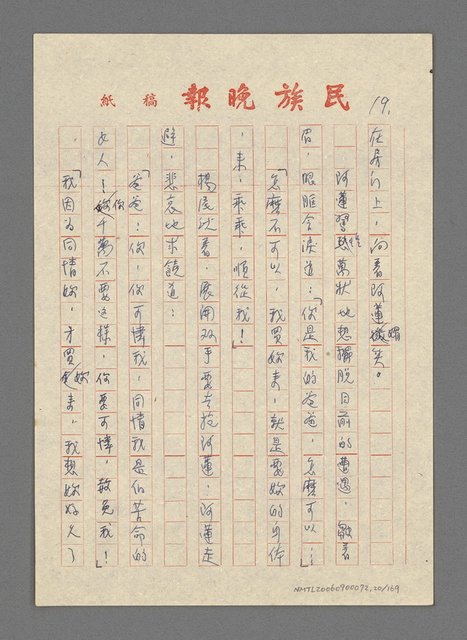 19.
民族晚報 稿紙
在房門上，向着阿蓮媚笑。
阿蓮驚慌萬狀地想擺脫目前的遭遇，皺着
眉，眼眶含淚道：「你是我的爸爸，怎麼可以…」
「怎麼不可以，我買妳來，就是要妳的身体
，來，乖乖，順從我！」
楊慶說着，展開双手要去抱阿蓮，阿蓮走
避，悲哀地求饒道：
「爸爸！你，你可憐我，同情我是個苦命的
女人！你千萬不要這樣，你要可憐，救免我！」
「我因為同情妳，才買妳來，我想妳好久了
NMTL20060900072,20/169